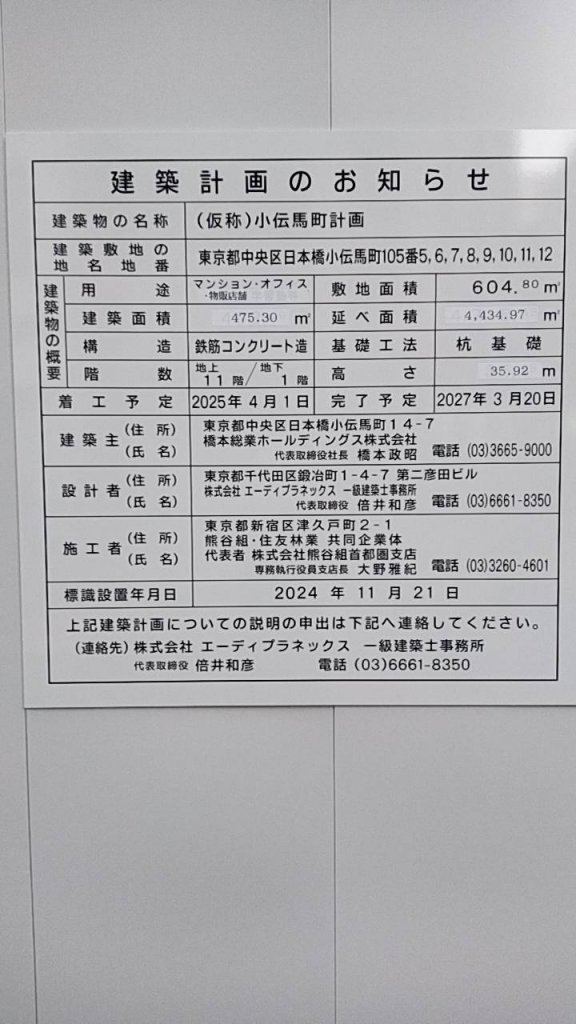 建築計画のお知らせ
建築物の名称 (仮称)小伝馬町計画
建築敷地の地名地番 東京都中央区日本橋小伝馬町105番5,6,7,8,9,10,11,12
建築物の概要
用途 マンション・オフィス・物販店舗 敷地面積 604.80㎡
建築面積 475.30㎡ 延べ面積 4,434.97㎡
構造 鉄筋コンクリート造 基礎工法 杭基礎
階数 地上11階/地下1階 高さ 35.92m
着工予定 2025年4月1日 完了予定 2027年3月20日
建築主(住所)(氏名) 東京都中央区日本橋小伝馬町14-7
橋本総業ホールディングス株式会社
代表取締役社長 橋本政昭 電話(03)3665-9000
設計者(住所)(氏名) 東京都千代田区鍛冶町1-4-7 第二彦田ビル
株式会社 エーディプラネックス 一級建築士事務所
代表取締役 倍井和彦 電話(03)6661-8350
施工者(住所)(氏名) 東京都新宿区津久戸町2-1
熊谷組・住友林業 共同企業体
代表者 株式会社熊谷組首都圏支店
専務執行役員支店長 大野雅紀 電話(03)3260-4601
標識設置年月日 2024年11月21日
上記建築計画についての説明の申出は下記へ連絡してください。
(連絡先)株式会社 エーディプラネックス 一級建築士事務所
代表取締役 倍井和彦 電話(03)6661-8350